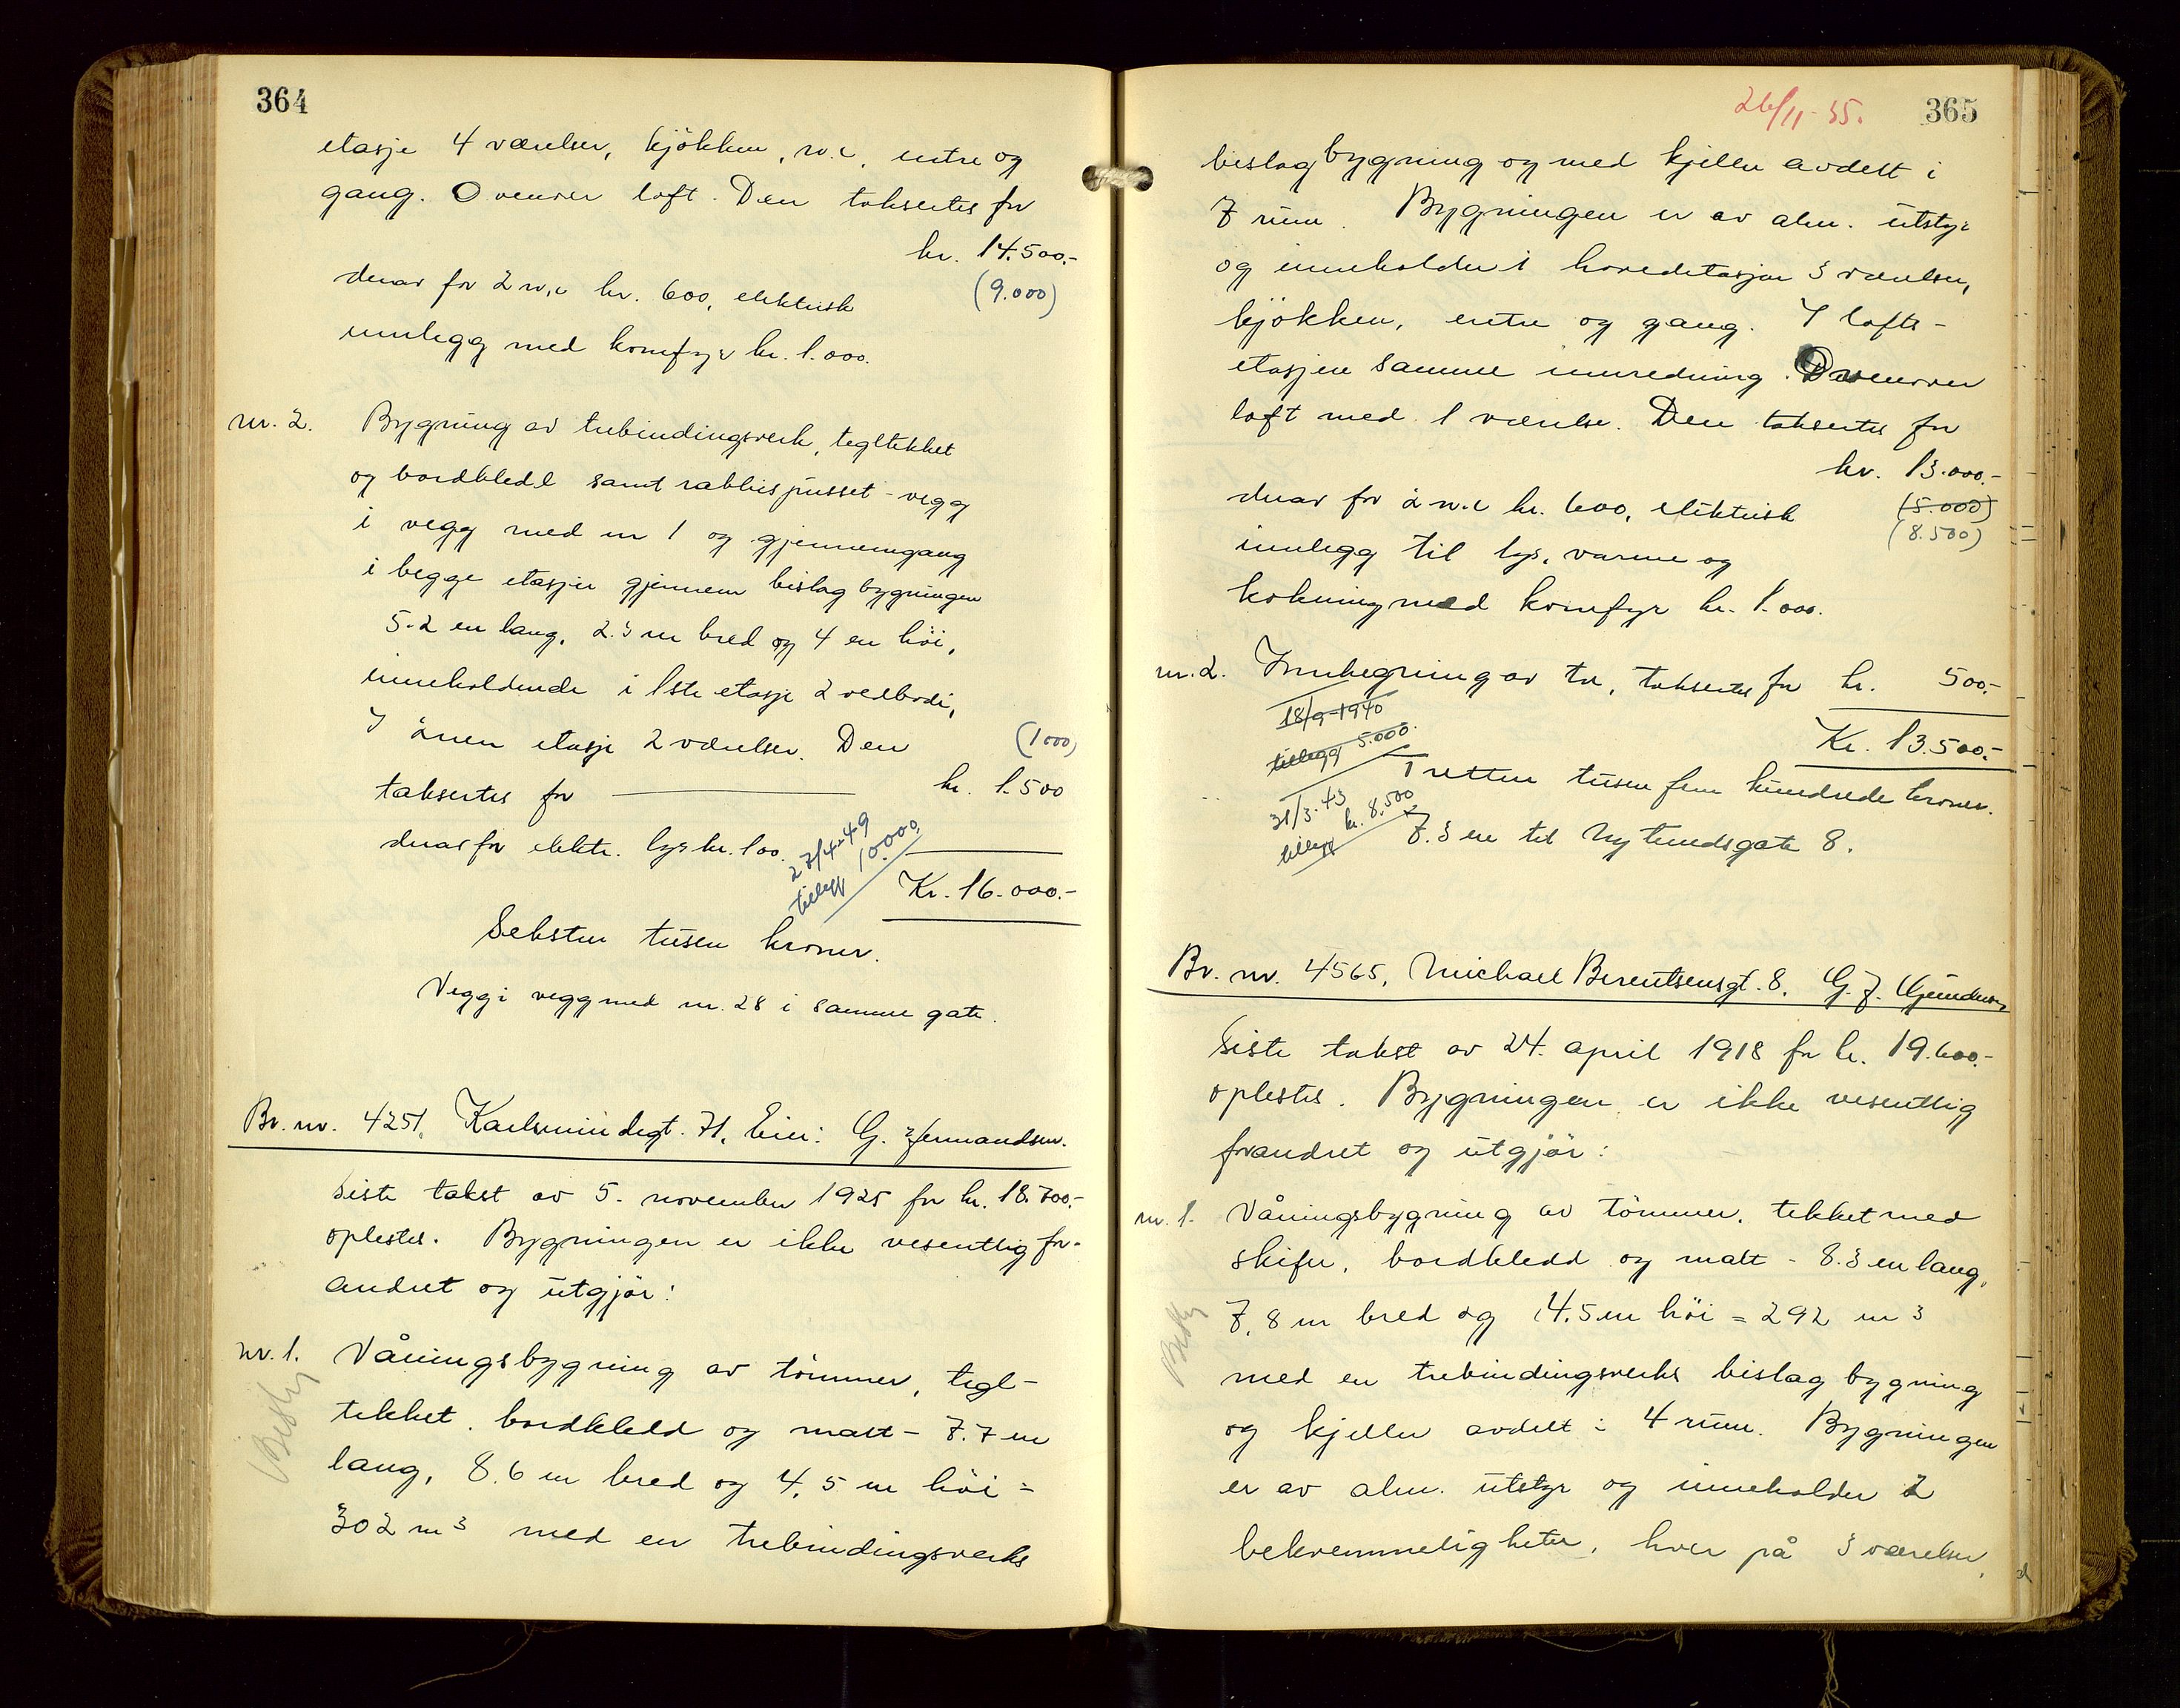 364
etasje 4 værelser, kjökken, w.c, entre og
gang. Ovenver loft. Den taksertes for
kr. 14.500.-
derav for 2 w.c kr. 600, elektrisk
(9.000)
innlegg med komfyr kr. 1.000.
nr. 2. Bygning av trebindingsverk, tegltekket
og bordkledd samt rabbispusset - vegg
i vegg med nr 1 og gjennemgang
i begge etasjer gjennem bislagbygningen
5.2 m lang, 2.3 m bred og 4 m höi,
inneholdende i 1ste etasje 2 vedboder,
I ånen etasje 2 værelser. Den
(1000)
taksertes for kr. 1.500
derav for elektr. lys kr. 100.
27/4-49
tillegg 10.000.
Kr. 16.000.-
Seksten tusen kroner.
Vegg i vegg med nr. 28 i samme gate.
Br. nr. 4251, Karlsminnegt. 71, Eier: G. Hermandsen.
Siste takst av 5. november 1925 for kr. 18.700.-
oplestes. Bygningen er ikke vesentlig for-
andret og utgjör:
nr. 1. Våningsbygning av tömmer, tegl-
tekket, bordkledd og malt - 7.7 m
lang, 8.6 m bred og 4.5 m höi =
302 m3 med en trebindingsverks
26/11-35. 365
bislagbygning og med kjeller avdelt i
7 rum. Bygningen er av alm. utstyr
og inneholder i hovedetasjen 3 værelser,
kjökken, entre og gang. I lofts-
etasjen samme innredning. Ovenover
loft med 1 værelse. Den taksertes for
kr. 13.000.-
derav for 2 w.c kr. 600, elektrisk
(5.000)
(8.500)
innlegg til lys, varme og
kokning med komfyr kr. 1.000.
nr. 2. Innhegning av tre, taksertes for kr. 500.-
18/9-1940
tillegg 5.000.
Kr. 13.500.-
Tretten tusen fem hundrede kroner.
31/3-43
tillegg kr. 8.500
7.3 m til Nytundsgate 8.
Br. nr. 4565, Michael Berentsensgt. 8, G. J.
Siste takst av 24. april 1918 for kr. 19.600.-
oplestes. Bygningen er ikke vesentlig
forandret og utgjör:
nr. 1. Våningsbygning av tömmer, tekket med
skifer, bordkledd og malt - 8.3 m lang,
7.8 m bred og 4.5 m höi = 292 m3
med en trebindingsverks bislagbygning
og kjeller avdelt i 4 rum. Bygningen
er av alm. utstyr og inneholder 2
bekvemmeligheter, hver på 3 værelser,